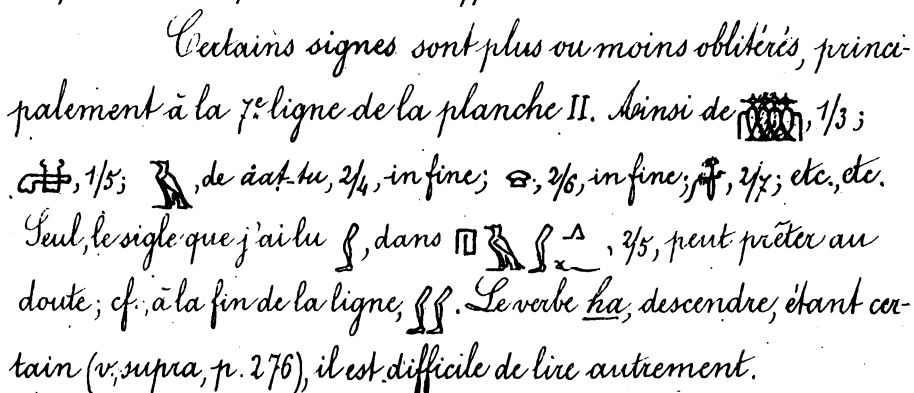 Certains signes sont plus ou moins oblitérés, princi-
palement à la 7e ligne de la planche II. Ainsi de , 1/3 ;
, 1/5 ; 𓅓, de áat-tu, 2/4, in fine ; , 2/6, in fine ; , 2/7 ; etc., etc.
Seul, le sigle que j'ai lu 𓃀, dans 𓉔𓅓𓃀 , 2/5, peut prêter au
doute ; cf., à la fin de la ligne, 𓃀𓃀. Le verbe ha, descendre, étant cer-
tain (v, supra, p. 276), il est difficile de lire autrement.